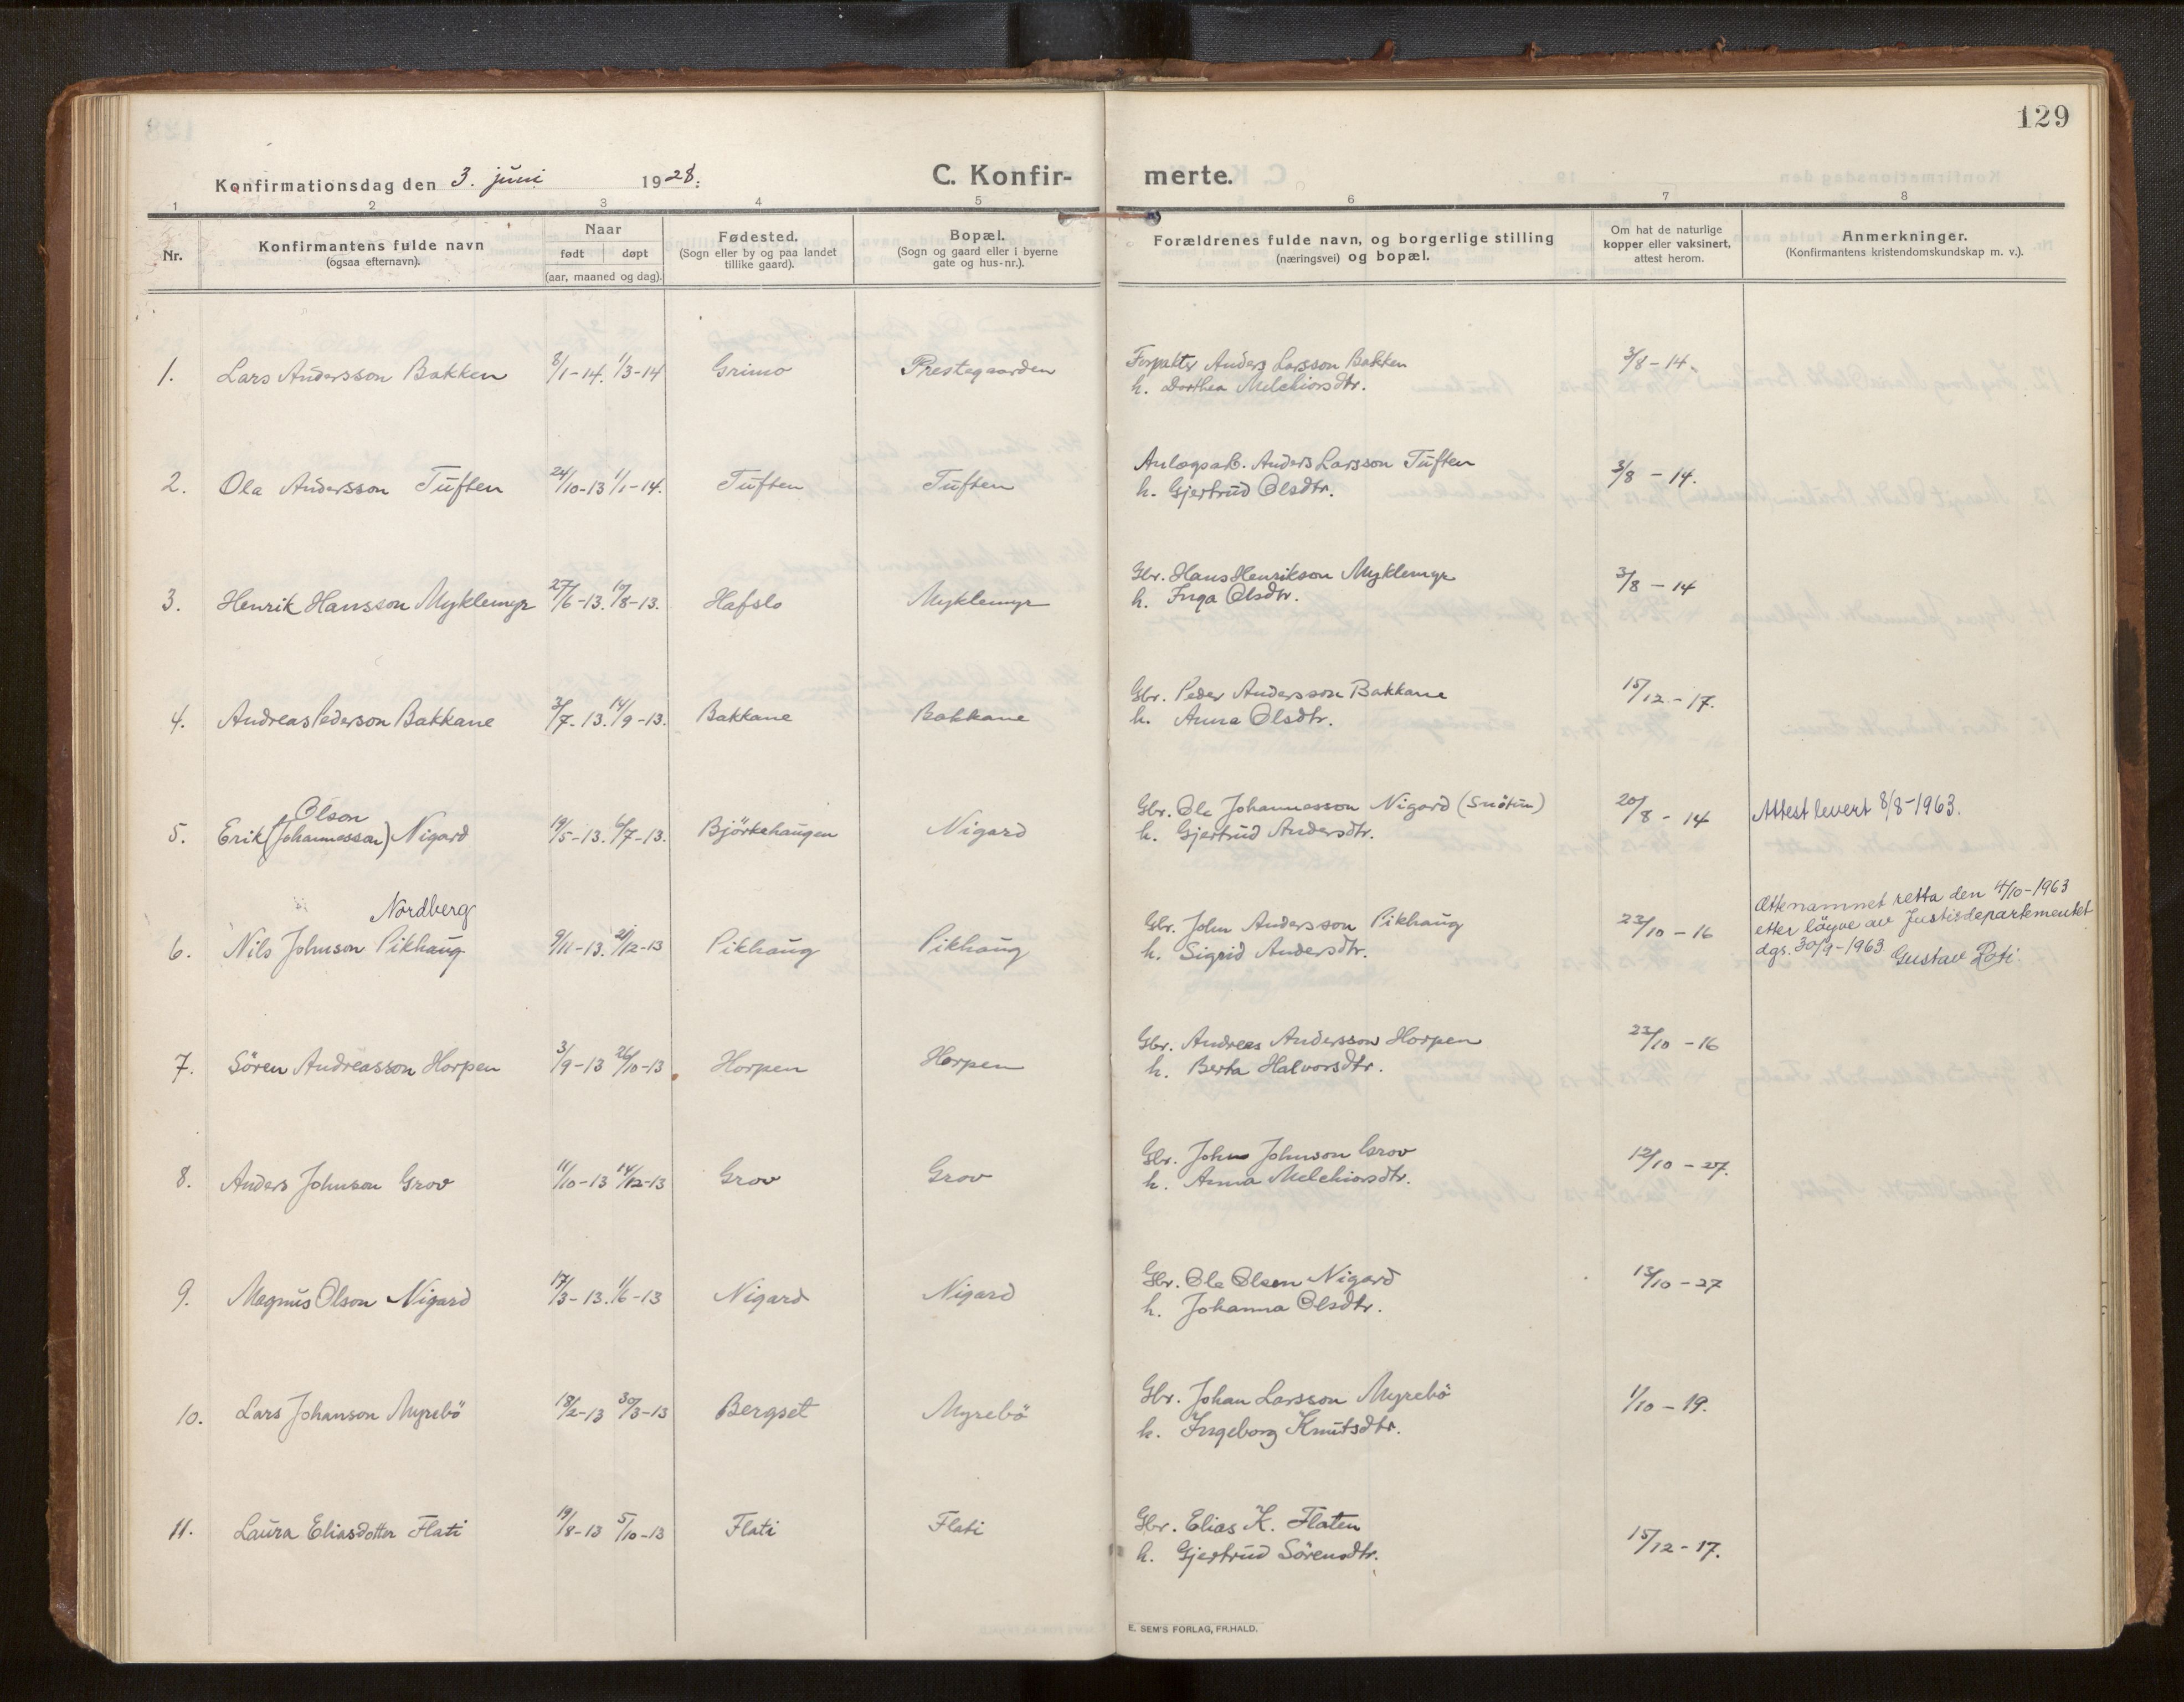 129
Konfirmationsdag den 3. juni 1928. C. Konfir- merte.
1 2 3 4 5 6 7 8
Nr. Konfirmantens fulde navn (ogsaa efternavn). Naar født døpt (aar, maaned og dag). Fødested. (Sogn eller by og paa landet tillike gaard). Bopæl. (Sogn og gaard eller i byerne gate og hus-nr.). Forældrenes fulde navn, og borgerlige stilling (næringsvei) og bopæl. Om hat de naturlige kopper eller vaksinert, attest herom. Anmerkninger. (Konfirmantens kristendomskundskap m. v.).
1. Lars Andersson Bakken 8/1-14. 1/3-14 Grimo Prestegaarden Forpakter Anders Larsson Bakken 3/8-14.
h. Dorthea Melchiorsdtr.
2. Ola Andersson Tuften 24/10-13 1/1-14. Tuften Tuften Anlægsarb. Anders Larsson Tuften 3/8-14.
h. Gjertrud Olsdtr.
3. Henrik Hansson Myklemyr 27/6-13. 17/8-13. Hafslo Myklemyr Gbr. Hans Henrikson Myklemyr 3/8-14
h. Inga Olsdtr.
4. Andreas Pederson Bakkane 3/7-13. 14/9-13. Bakkane Bakkane Gbr. Peder Andersson Bakkane 15/12-17.
h. Anna Olsdtr.
Olson
5. Erik (Johannesson) Nigard 19/5-13. 6/7-13. Björkehaugen Nigard Gbr. Ole Johannesson Nigard (Snötun) 20/8-14 Attest levert 8/8-1963.
h. Gjertrud Andersdtr.
Nordberg
6. Nils Johnson Pikhaug 9/11-13. 21/12-13 Pikhaug Pikhaug Gbr. John Andersson Pikhaug 23/10-16 Ættenamnet retta den 4/10-1963
h. Sigrid Andersdtr. etter löyve av Justisdepartementet
dgs. 30/9-1963 Gustav
7. Sören Andreasson Horpen 3/9-13 26/10-13 Horpen Horpen Gbr. Andreas Andersson Horpen 23/10-16
h. Berta Halvorsdtr.
8. Anders Johnson Grov 11/10-13 14/12-13 Grov Grov Gbr. John Johnson Grov 12/10-27.
h. Anna Melchiorsdtr.
9. Magnus Olson Nigard 17/3-13. 1/6-13 Nigard Nigard Gbr. Ole Olsen Nigard 13/10-27
h. Johanna Olsdtr.
10. Lars Johanson Myrebö 18/2-13 30/3-13 Bergset Myrebö Gbr. Johan Larsson Myrebö 1/10-19.
h. Ingeborg Knutsdtr.
11. Laura Eliasdotter Flati 19/8-13 5/10-13 Flati Flati Gbr. Elias K. Flaten 15/12-17.
h. Gjertrud Sörensdtr.
E. SEM'S FORLAG, FR.HALD.